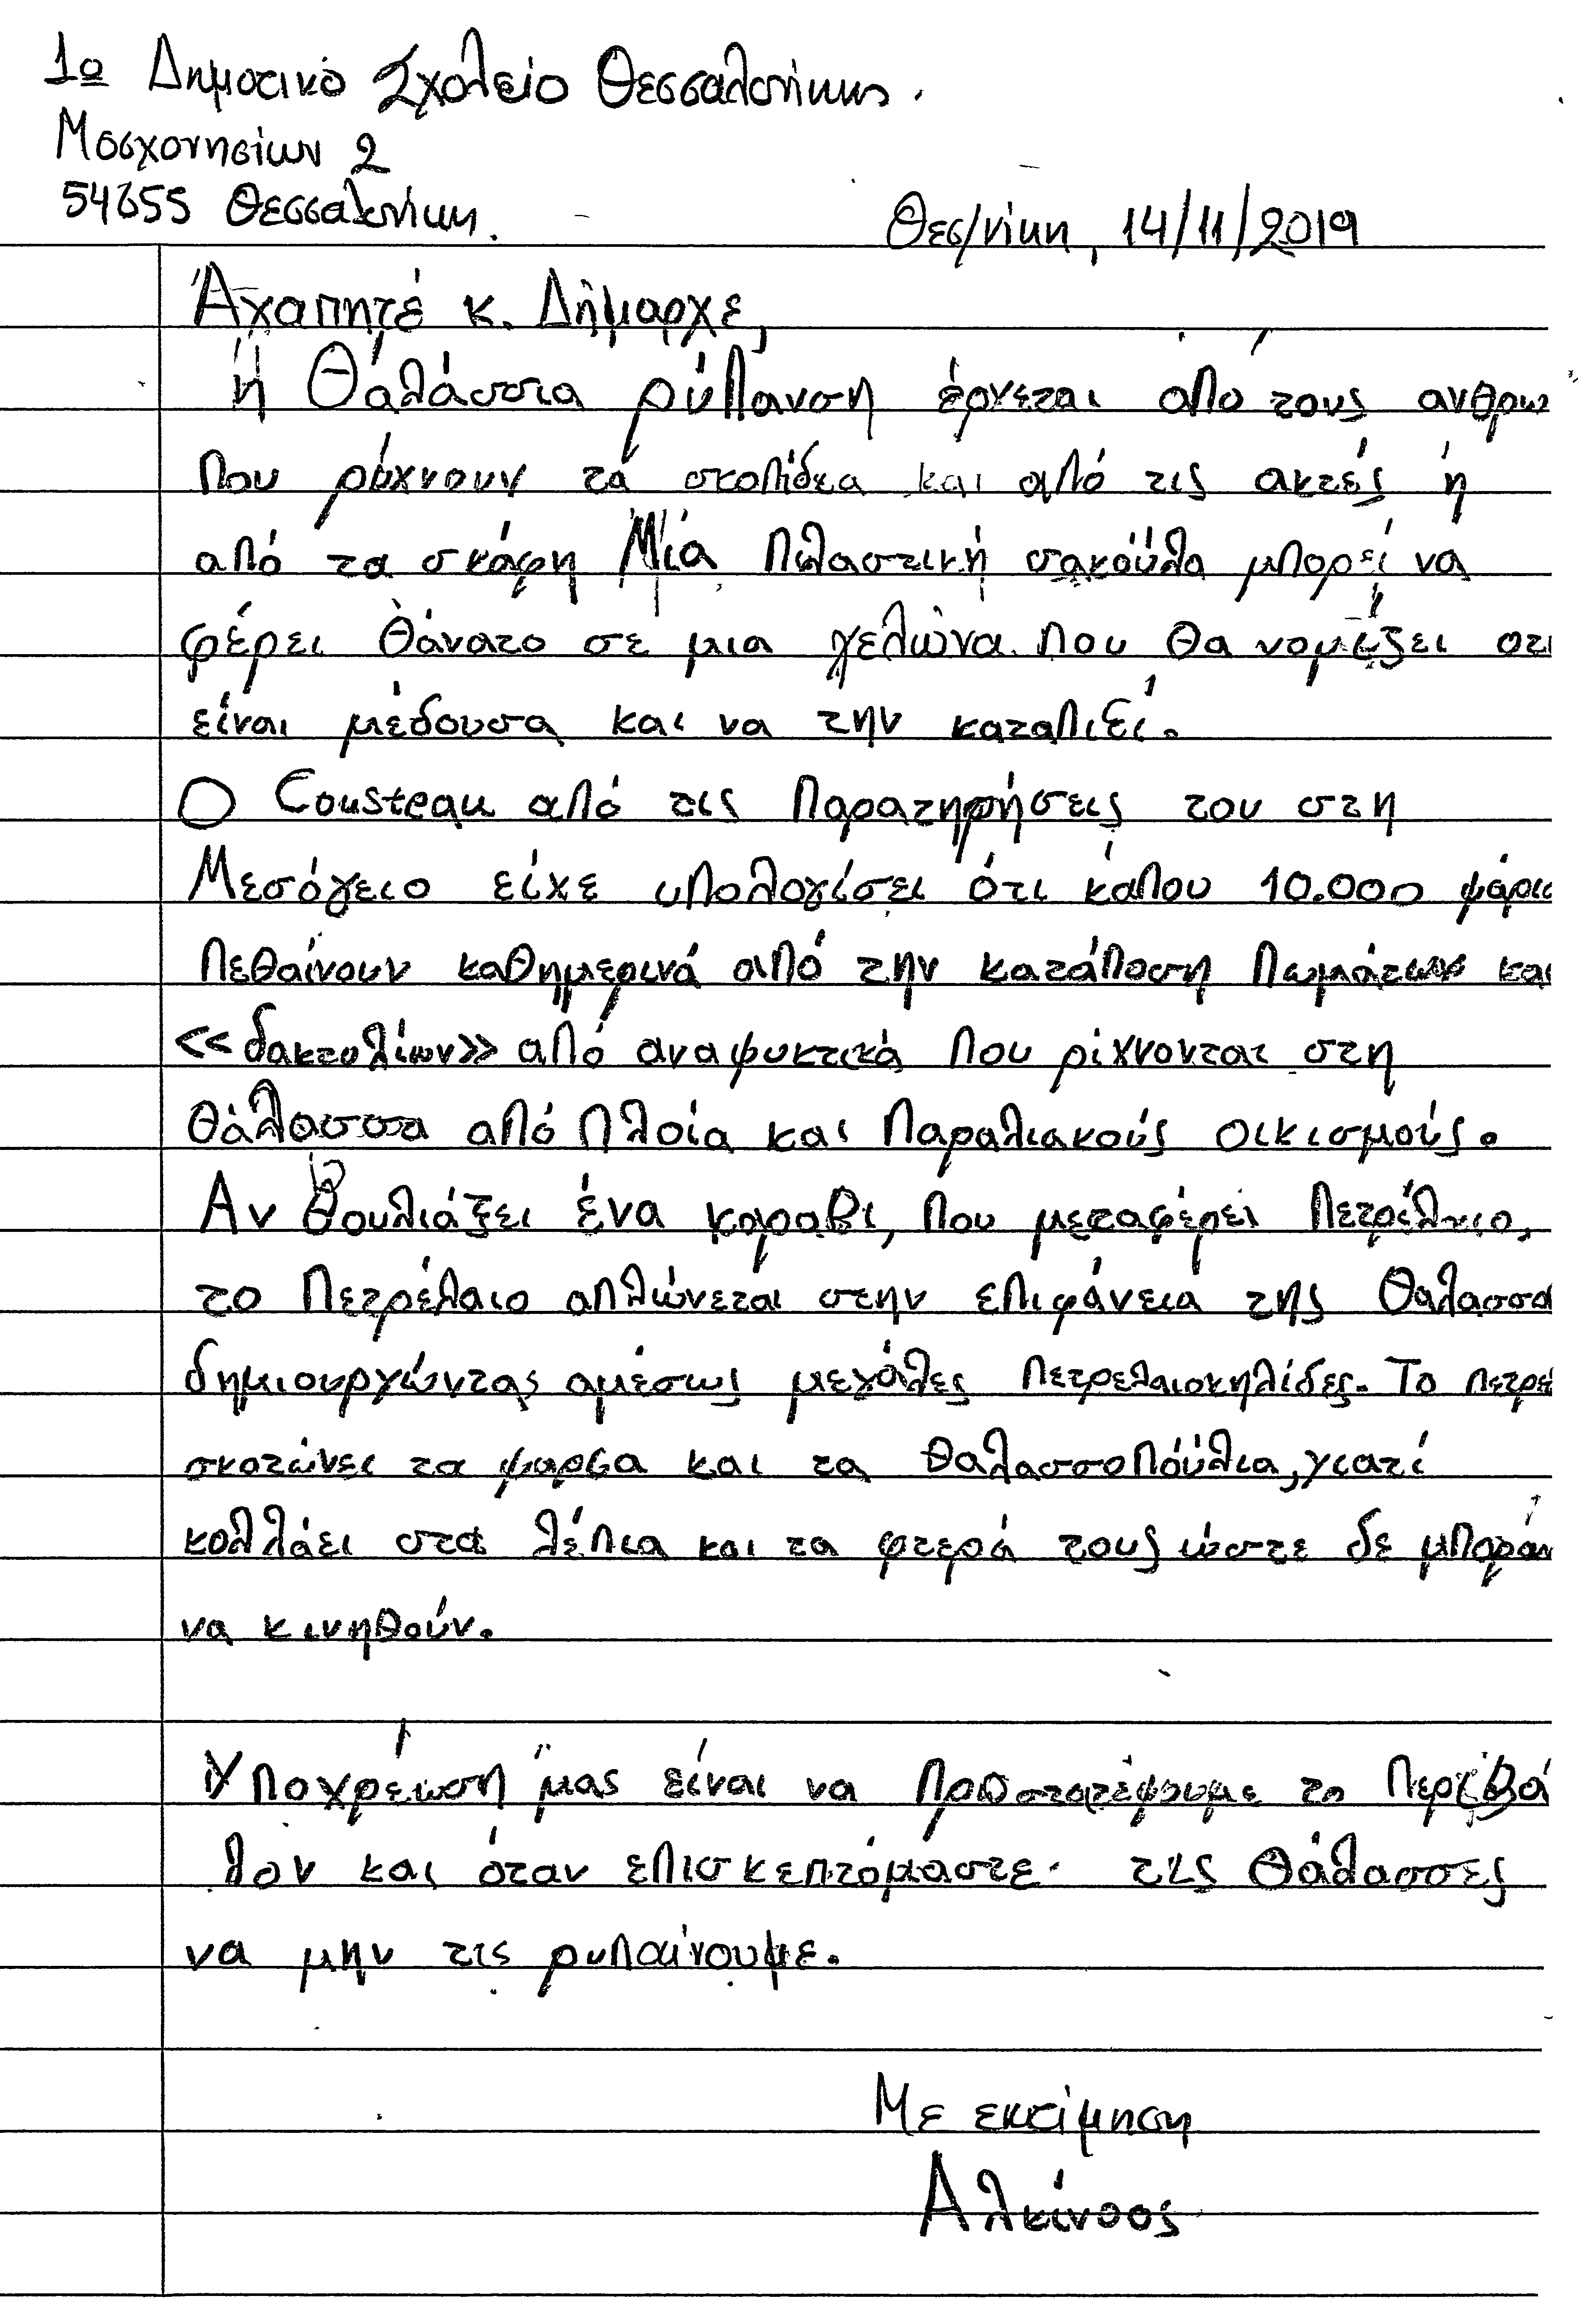 1ο Δημοτικό Σχολείο Θεσσαλονίκης.
Μοσχονησίων 2
54655 Θεσσαλονίκη.
Θεσ/νίκη, 14/11/2019
Άγαπητέ κ. Δήμαρχε,
ή Θάλάσσια ρύπανση έρχεται από τους ανθρώ
που ρύχνουν τα σκοπίδεα και από τις ακτές ή
από τα σκάφη Μία πλαστική σακούλα μπορεί να
φέρει θάνατο σε μια χελώνα που θα νομίζει οτι
είναι μέδουσα και να την καταπιεί.
Ο Cousteau από τις παρατηρήσεις του στη
Μεσόγειο είχε υπολογίσει ότι κάπου 10.000 ψάρια
πεθαίνουν καθημερινά από την κατάποση πωμάτων και
<<δακτυλίων>> από αναψυκτικά που ρίχνονται στη
θάλασσα από πλοία και παραλιακούς οικισμούς.
Αν βουλιάξει ένα καραβι, που μεταφέρει πετρέλαιο,
το πετρέλαιο απλώνεται στην επιφάνεια της θάλασσα
δημιουργώντας αμέσως μεγάλες πετρελαιοκηλίδες. Το πετρέ
σκοτώνει τα ψαρια και τα θαλασσοπούλια, γιατί
κολλάει στα λέπια και τα φτερά τους ώστε δε μπορόυν
να κινηθούν.
Υποχρέωση μας είναι να προστατέψουμε το περιβά
λον και όταν επισκεπτόμαστε τις θάλασσες
να μην τις ρυπαίνουμε.
Με εκτίμηση
Αλκίνοος